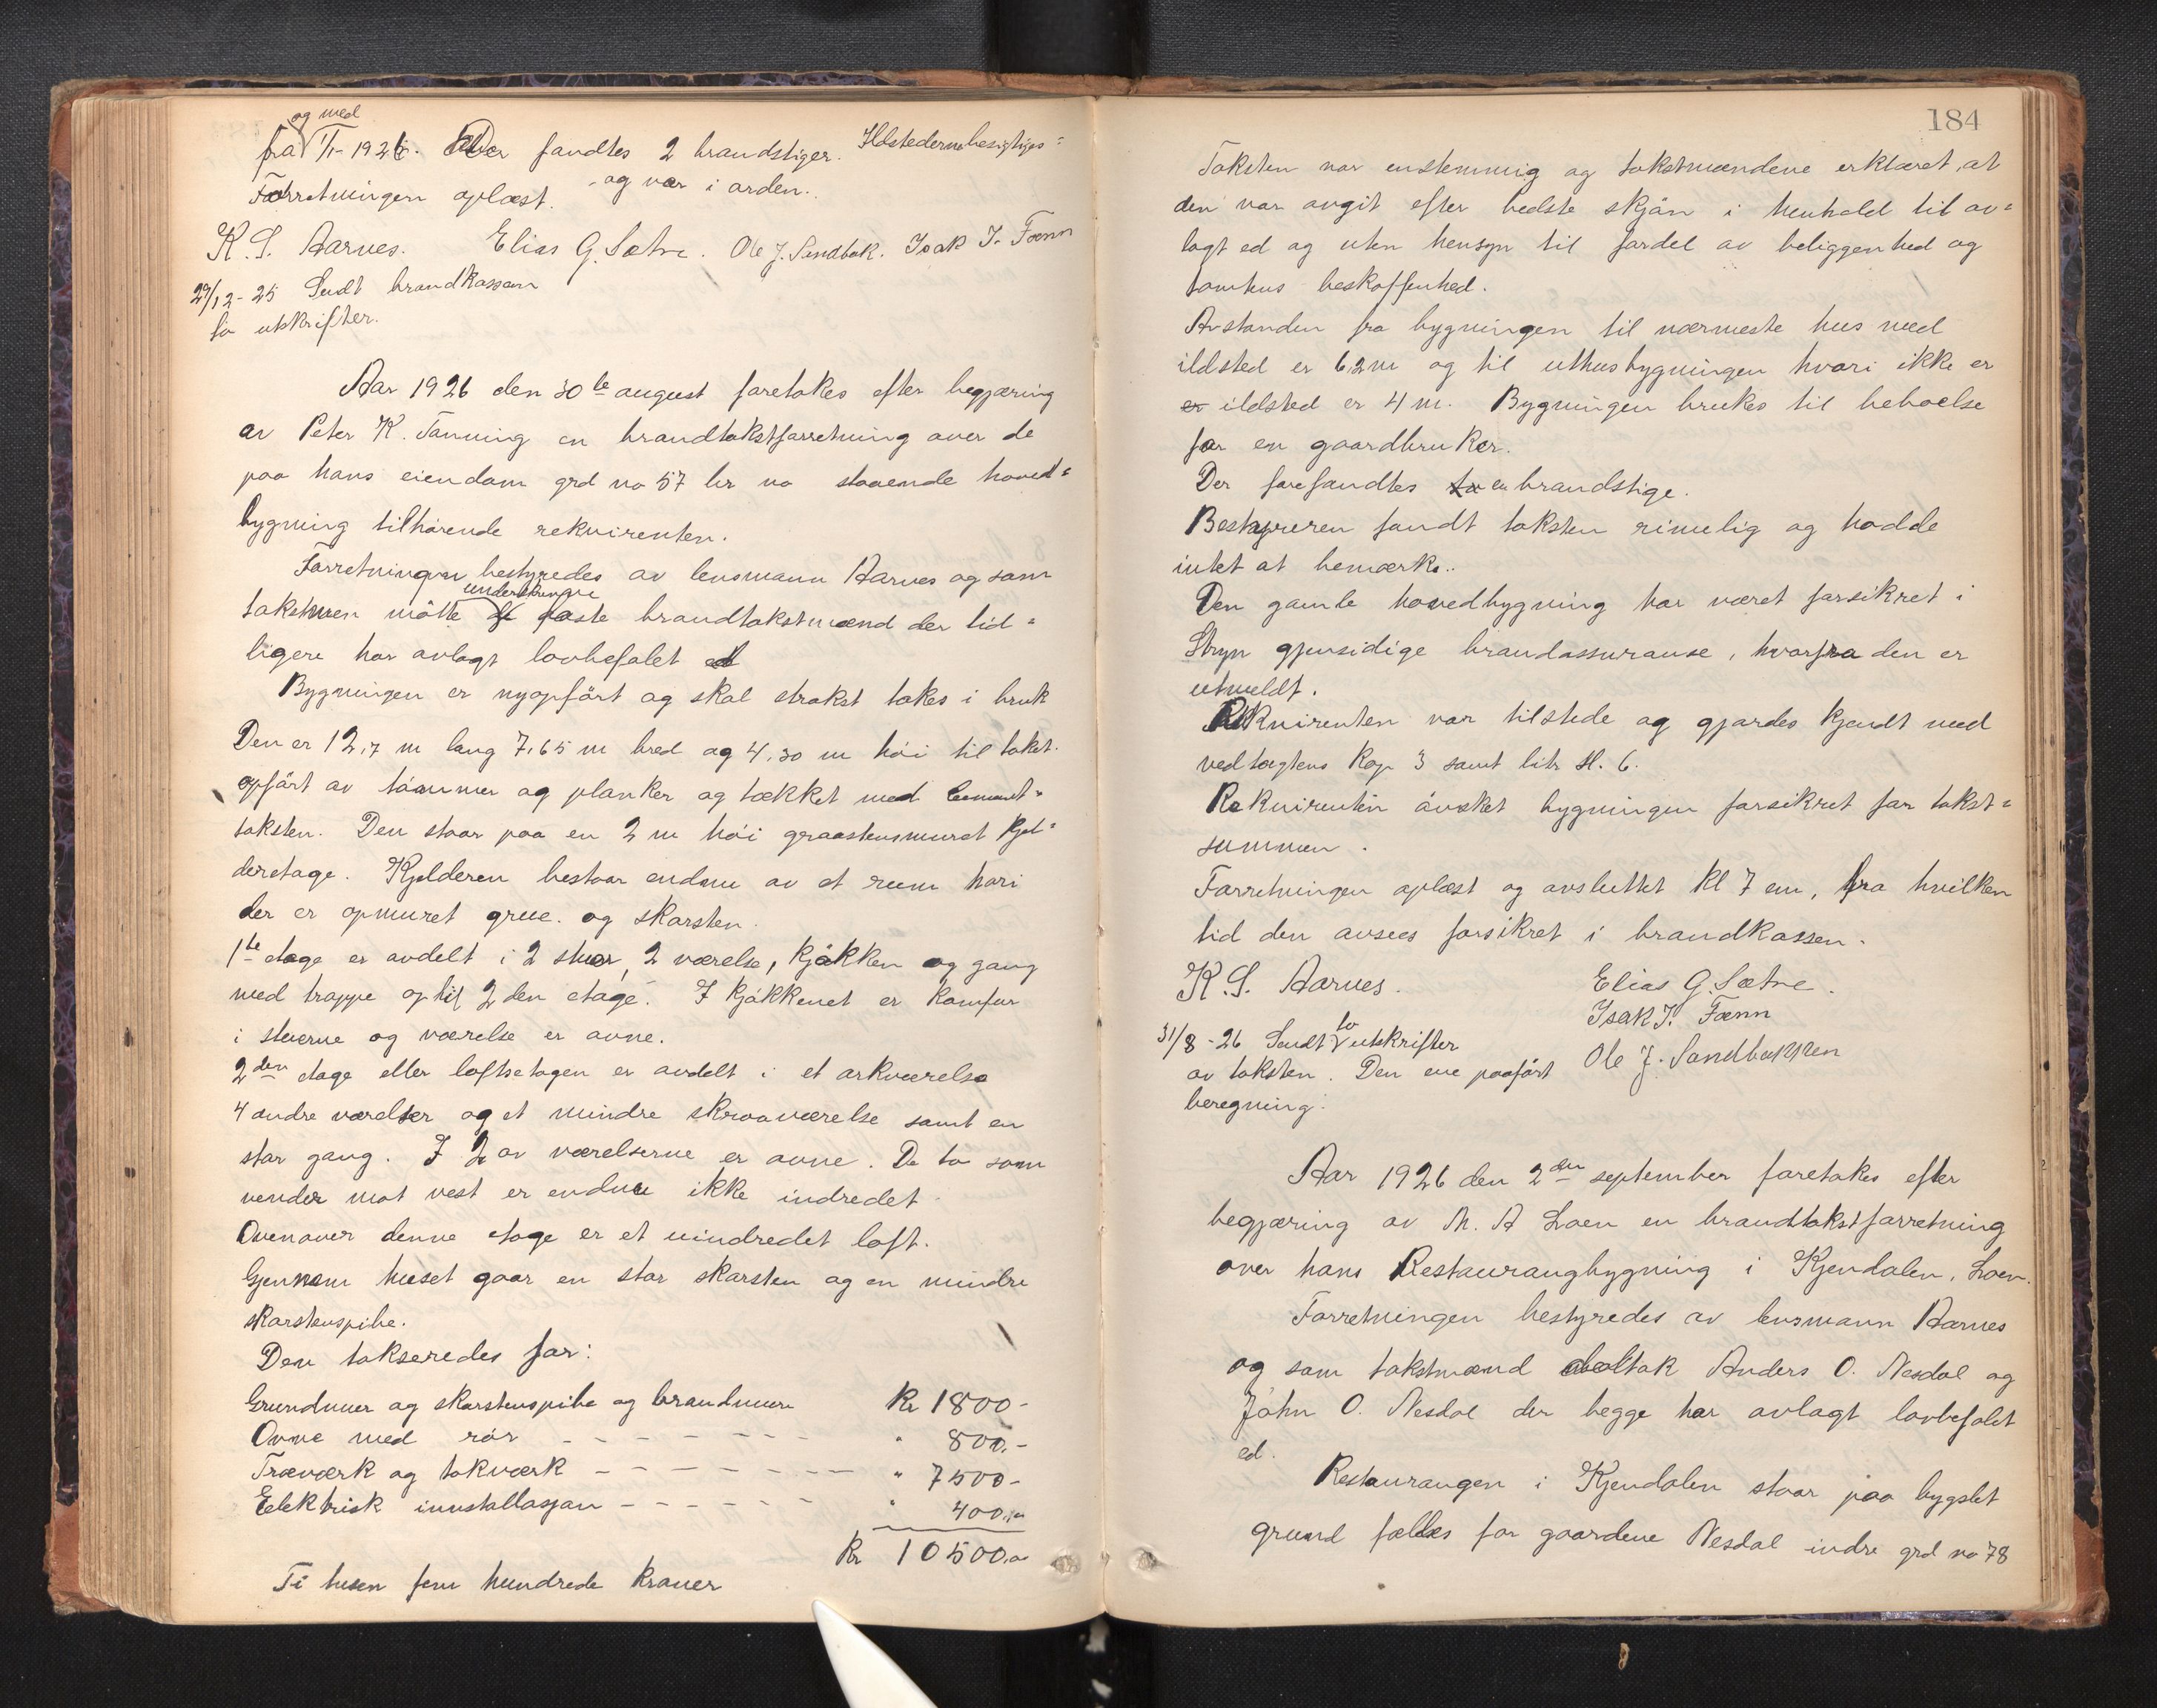 og med
fra 1/1-1926. Der fandtes 2 brandstiger. Ildstederne besigtiges=
Forretningen oplæst. - og var i orden.
K. S. Aarnes. Elias G. Sætre. Ole J. Sandbak. Isak I. Fænn
29/12-25 Sendt brandkassen
to utskrifter.
Aar 1926 den 30te august foretokes efter begjæring
av Peter K. Tonning en brandtakstforretning over de
paa hans eiendom grd no 57 br no staaende hoved=
bygning tilhørende rekvirenten.
Forretningen bestyredes av lensmann Aarnes og som
underskrevne
takstmen møtte faste brandtakstmænd der tid=
ligere har avlagt lovbefalet ed
Bygningen er nyopført og skal strakst takes i bruk
Den er 12,7 m lang 7,65 m bred og 4,30 m høi til taket.
opført av tømmer og planker og tækket med cement=
taksten. Den staar paa en 2 m høi graastensmuret kjel=
deretage. Kjelderen bestaar endnu av et rum hvori
der er opmuret grue. og skorsten.
1te etage er avdelt i 2 stuer, 2 værelse, kjøkken og gang
med trappe op til 2den etage. I kjøkkenet er komfur
i stuerne og værelse er ovne.
2den etage eller loftsetagen er avdelt i et arkværelse
4 andre værelser og et mindre skraaværelse samt en
stor gang. I 2 av værelserne er ovne. De to som
vender mot vest er endnu ikke indredet.
Ovenover denne etage er et uindredet loft.
Gjennem huset gaar en stor skorsten og en mindre
skorstenspibe.
Den takseredes for:
Grundmur og skorstenspibe og brandmure Kr 1800-
Ovne med rør - - - - - - - - " 800.-
Træværk og takværk - - - - - - - - " 7500-
Eelektrisk innstallasjon - - - - - - " 400,00
Kr 10500,00
Ti tusen fem hundrede kroner
184
Taksten var enstemmig og takstmændene erklæret, at
den var avgit efter bedste skjøn i henhold til av=
lagt ed og uten hensyn til fordel av beliggenhed og
tomtens beskaffenhed.
Avstanden fra bygningen til nærmeste hus med
ildsted er 62 m og til uthusbygningen hvori ikke er
er ildsted er 4 m. Bygningen brukes til beboelse
for en gaardbruker.
Der forefandtes to en brandstige.
Bestyreren fandt taksten rimelig og hadde
intet at bemærke..
Den gamle hovedbygning har været forsikret i
Stryn gjensidige brandassuranse, hvorfra den er
utmeldt.
Rekvirenten var tilstede og gjordes kjendt med
vedtægtens Kap 3 samt litr H. 6.
Rekvirenten ønsket bygningen forsikret for takst=
summen.
Forretningen oplæst og avsluttet kl 7 em, fra hvilken
tid den ansees forsikret i brandkassen.
K. S. Aarnes. Elias G. Sætre.
Isak I. Fænn
Ole J. Sandbakken
31/8-26 Sendt to utskrifter
av taksten. Den ene paaført
beregning.
Aar 1926 den 2den september foretokes efter
begjæring av M. A Loen en brandtakstforretning
over hans Restaurangbygning i Kjendalen, Loen.
Forretningen bestyredes av lensmann Aarnes
og som takstmænd deltok Anders O. Nesdal og
John O. Nesdal der begge har avlagt lovbefalet
ed.
Restaurangen i Kjendalen staar paa bygslet
grund fælles for gaardene Nesdal indre grd no 78